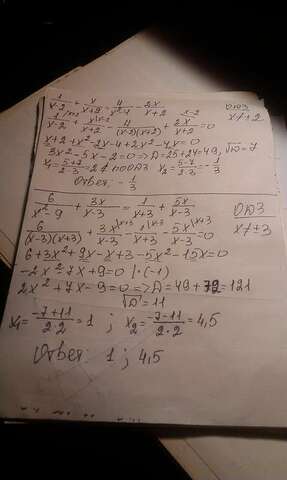 1/x-2 + x/x+2 = 4/x²-4 - 2x/x+2
1/x-2 + x/x+2 - 4/(x-2)(x+2) + 2x/x+2 = 0
ОДЗ
x≠±2
x+2+x²-2x-4+2x²-4x=0
3x²-5x-2=0 => D=25+24=49, √D=7
x₁=5+7/2·3=2 ∉ по ОДЗ x₂=5-7/2·3=-1/3
Ответ: -1/3
6/x²-9 + 3x/x-3 = 1/x+3 + 5x/x-3
ОДЗ
x≠±3
6/(x-3)(x+3) + 3x/x-3 - 1/x+3 - 5x/x-3 = 0
6+3x²+9x-x+3-5x²-15x=0
-2x²-7x+9=0 | ·(-1)
2x²+7x-9=0 => D=49+72=121
√D=11
x₁=-7+11/2·2=1 ; x₂=-7-11/2·2=4,5
Ответ: 1 ; 4,5